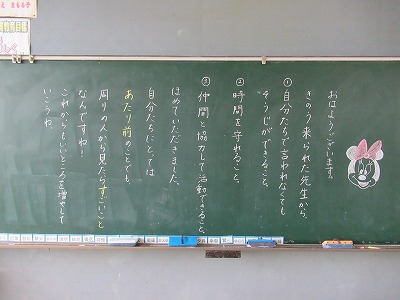 おはようございます。
きのう来られた先生から、
①自分たちで言われなくても
そうじができること。
②時間を守れること。
③仲間と協力して活動できること。
ほめていただきました。
自分たちにとっては
あたり前のことでも、
周りの人から見たらすごいこと
なんですね！
これからもいいところを増やして
いこうね。